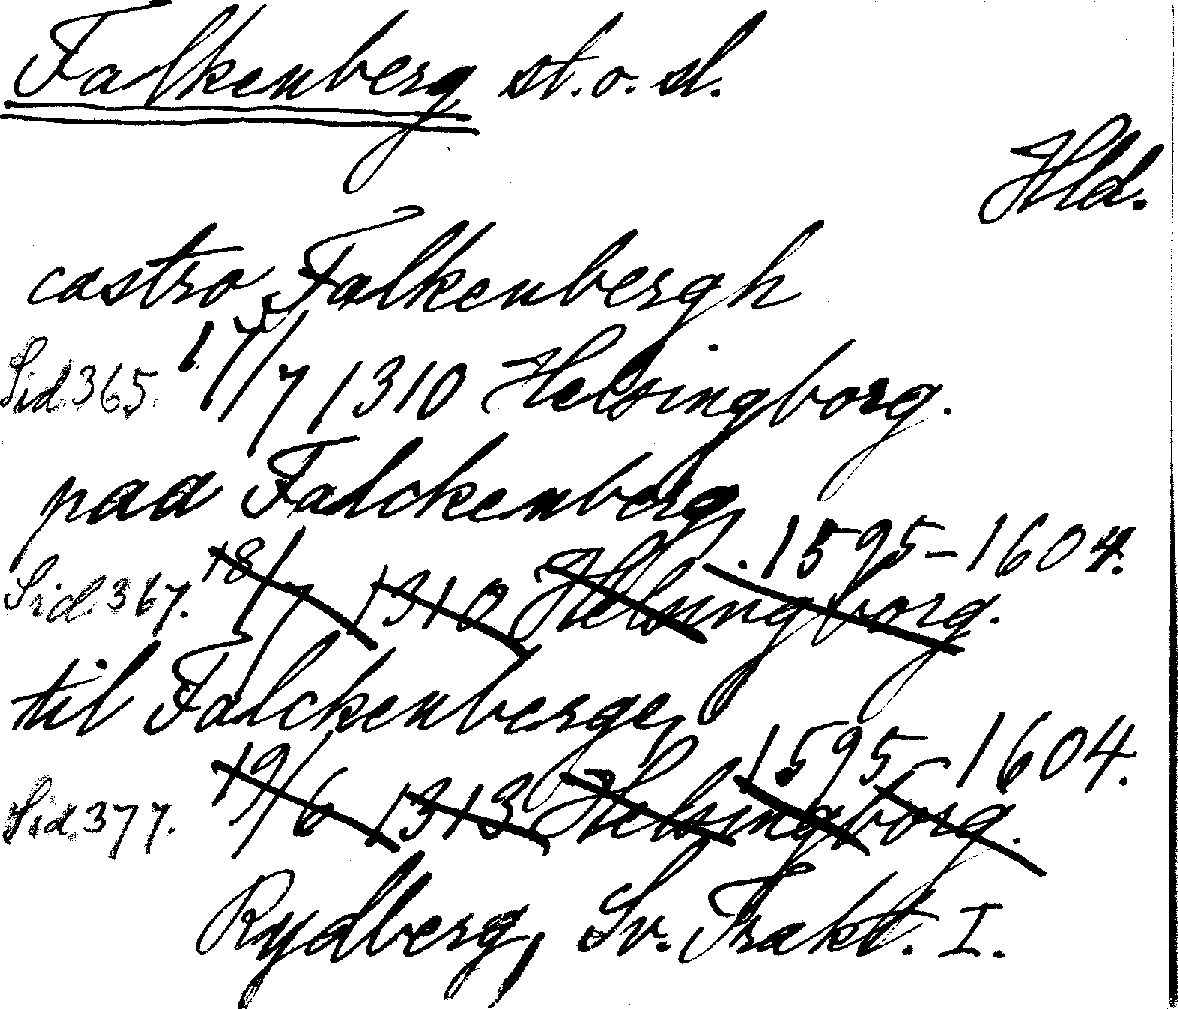 Falkenberg st. o. sl.
Hld.
castro Falkenbergh
Sid 365. 17/7 1310 Helsingborg.
paa Falckenberg
1595-1604.
Sid. 367. 18/7 1310 Helsingborg.
til Falckenberge
1595-1604.
Sid. 377. 19/6 1313 Helsingborg.
Rydberg, Sv. Trakt. I.